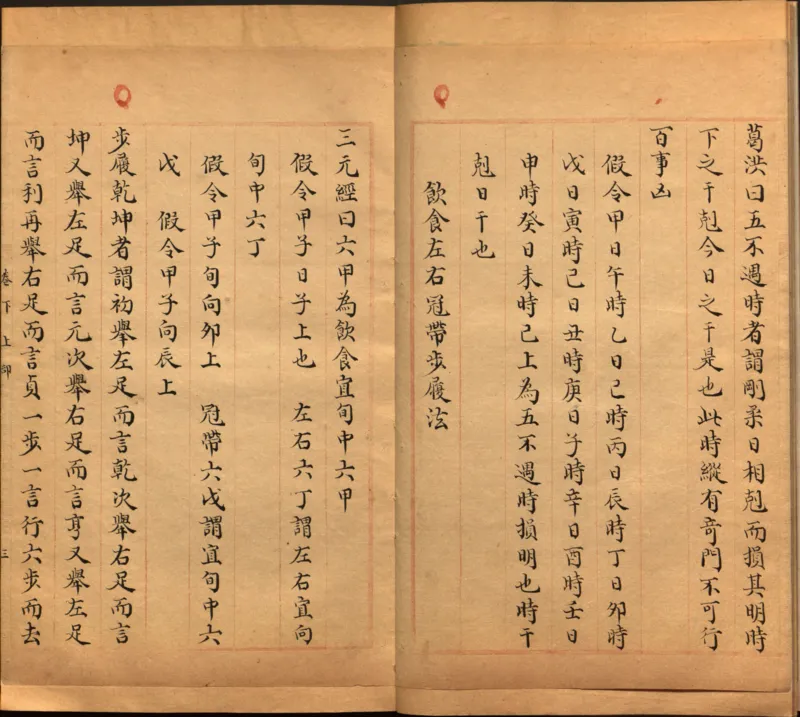 葛洪曰五不遇時者謂剛柔日相剋而損其明時
下之干剋今日之干是也此時縱有奇門不可行
百事凶
假令甲日午時乙日巳時丙日辰時丁日卯時
戊日寅時己日丑時庚日子時辛日酉時壬日
申時癸日未時已上為五不遇時損明也時干
剋日干也
飲食左右冠帶步履法
三元經曰六甲為飲食宜旬中六甲
假令甲子日子上也 左右六丁謂左右宜向
旬中六丁
假令甲子旬向卯上 冠帶六戊謂宜旬中六
戊 假令甲子向辰上
步履乾坤者謂初舉左足而言乾次舉右足而言
坤又舉左足而言元次舉右足而言亨又舉左足
而言利再舉右足而言貞一步一言行六步而去
卷下 上 三